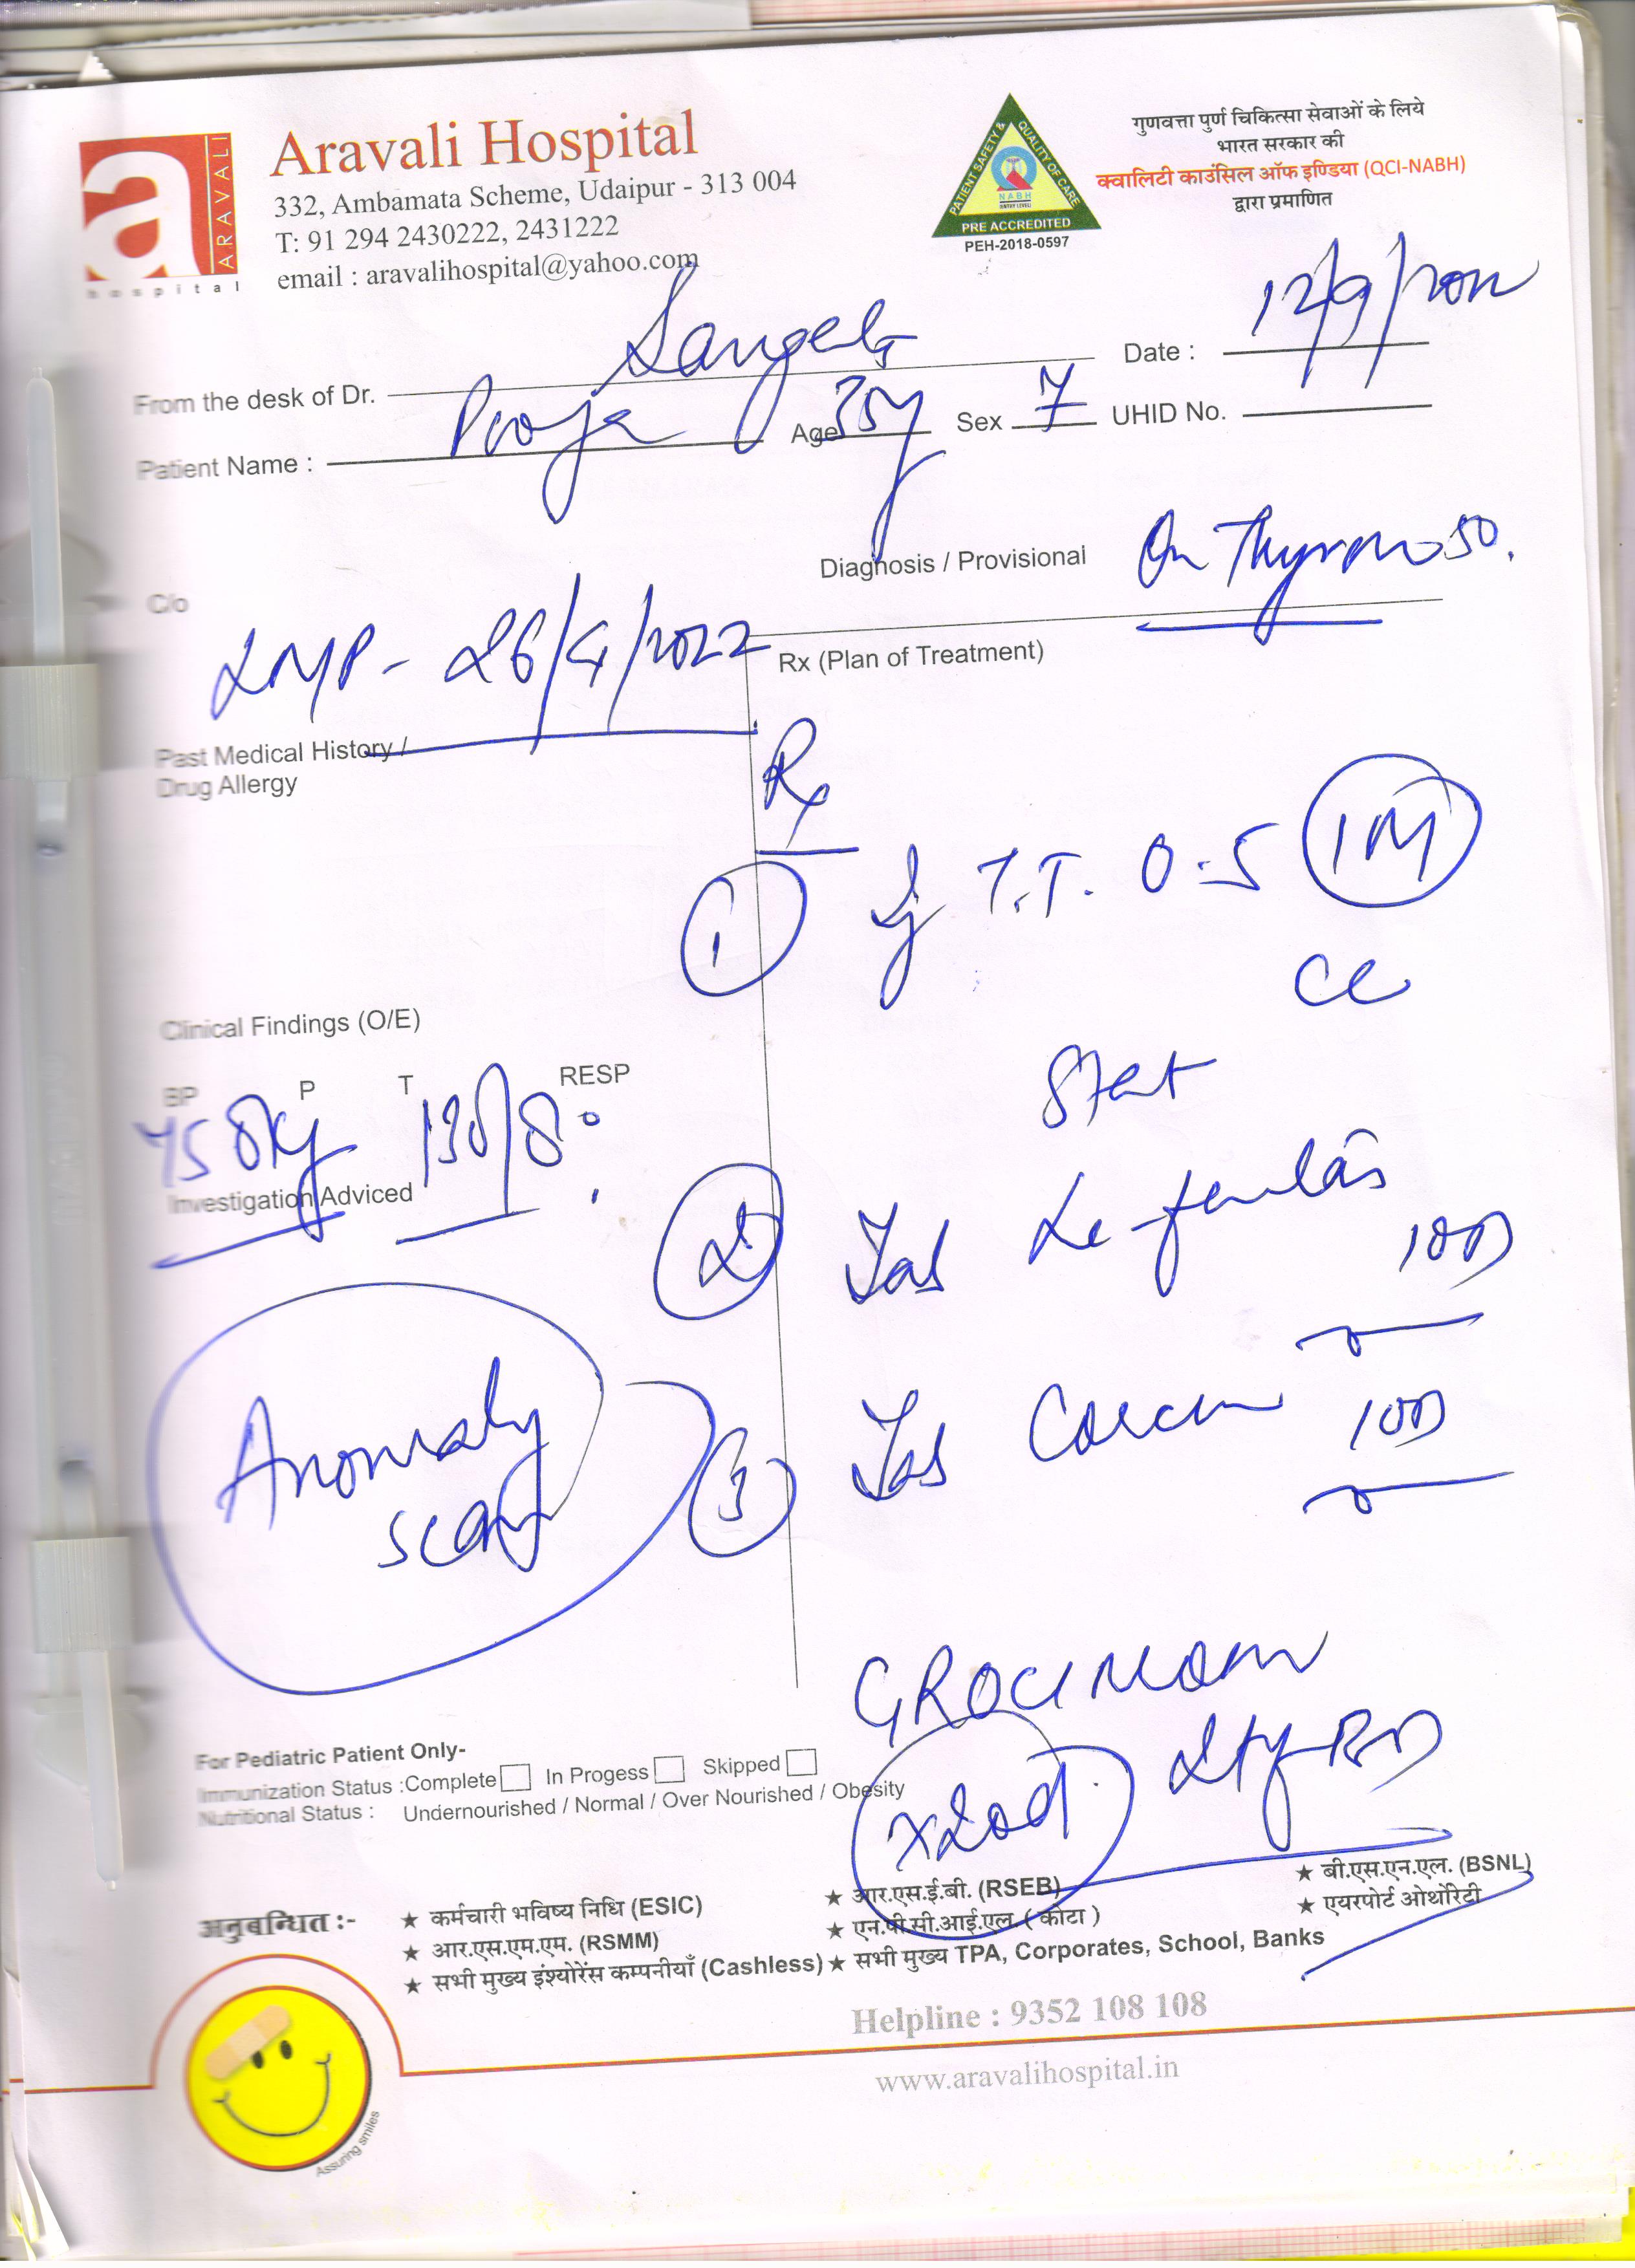 ARAVALI
hospital
Aravali Hospital
332, Ambamata Scheme, Udaipur - 313 004
T: 91 294 2430222, 2431222
email : aravalihospital@yahoo.com
PATIENT SAFETY & QUALITY OF CARE
NABH
PRE ACCREDITED
PEH-2018-0597
गुणवत्ता पुर्ण चिकित्सा सेवाओं के लिये
भारत सरकार की
क्वालिटी काउंसिल ऑफ इण्डिया (QCI-NABH)
द्वारा प्रमाणित
From the desk of Dr. Sangeeta Date : 12/9/2022
Patient Name : Pooja Age 35y Sex F UHID No.
Diagnosis / Provisional On Thyronorm 50.
C/o
LMP - 26/4/2022
Rx (Plan of Treatment)
Past Medical History /
Drug Allergy
Rx
1 Inj T.T. 0.5 IM
cc
Stat
Clinical Findings (O/E)
BP P T RESP
130/80
Investigation Adviced
2 Tab 1OD
3 Tab 1OD
Anomaly
scan
x20d
For Pediatric Patient Only-
Immunization Status :Complete In Progess Skipped
Nutritional Status : Undernourished / Normal / Over Nourished / Obesity
अनुबन्धित :-
★ कर्मचारी भविष्य निधि (ESIC) ★ आर.एस.ई.बी. (RSEB) ★ बी.एस.एन.एल. (BSNL)
★ आर.एस.एम.एम. (RSMM) ★ एन.पी.सी.आई.एल. ( कोटा ) ★ एयरपोर्ट ओथोरिटी
★ सभी मुख्य इंश्योरेंस कम्पनीयाँ (Cashless) ★ सभी मुख्य TPA, Corporates, School, Banks
Helpline : 9352 108 108
www.aravalihospital.in
Assuring smiles